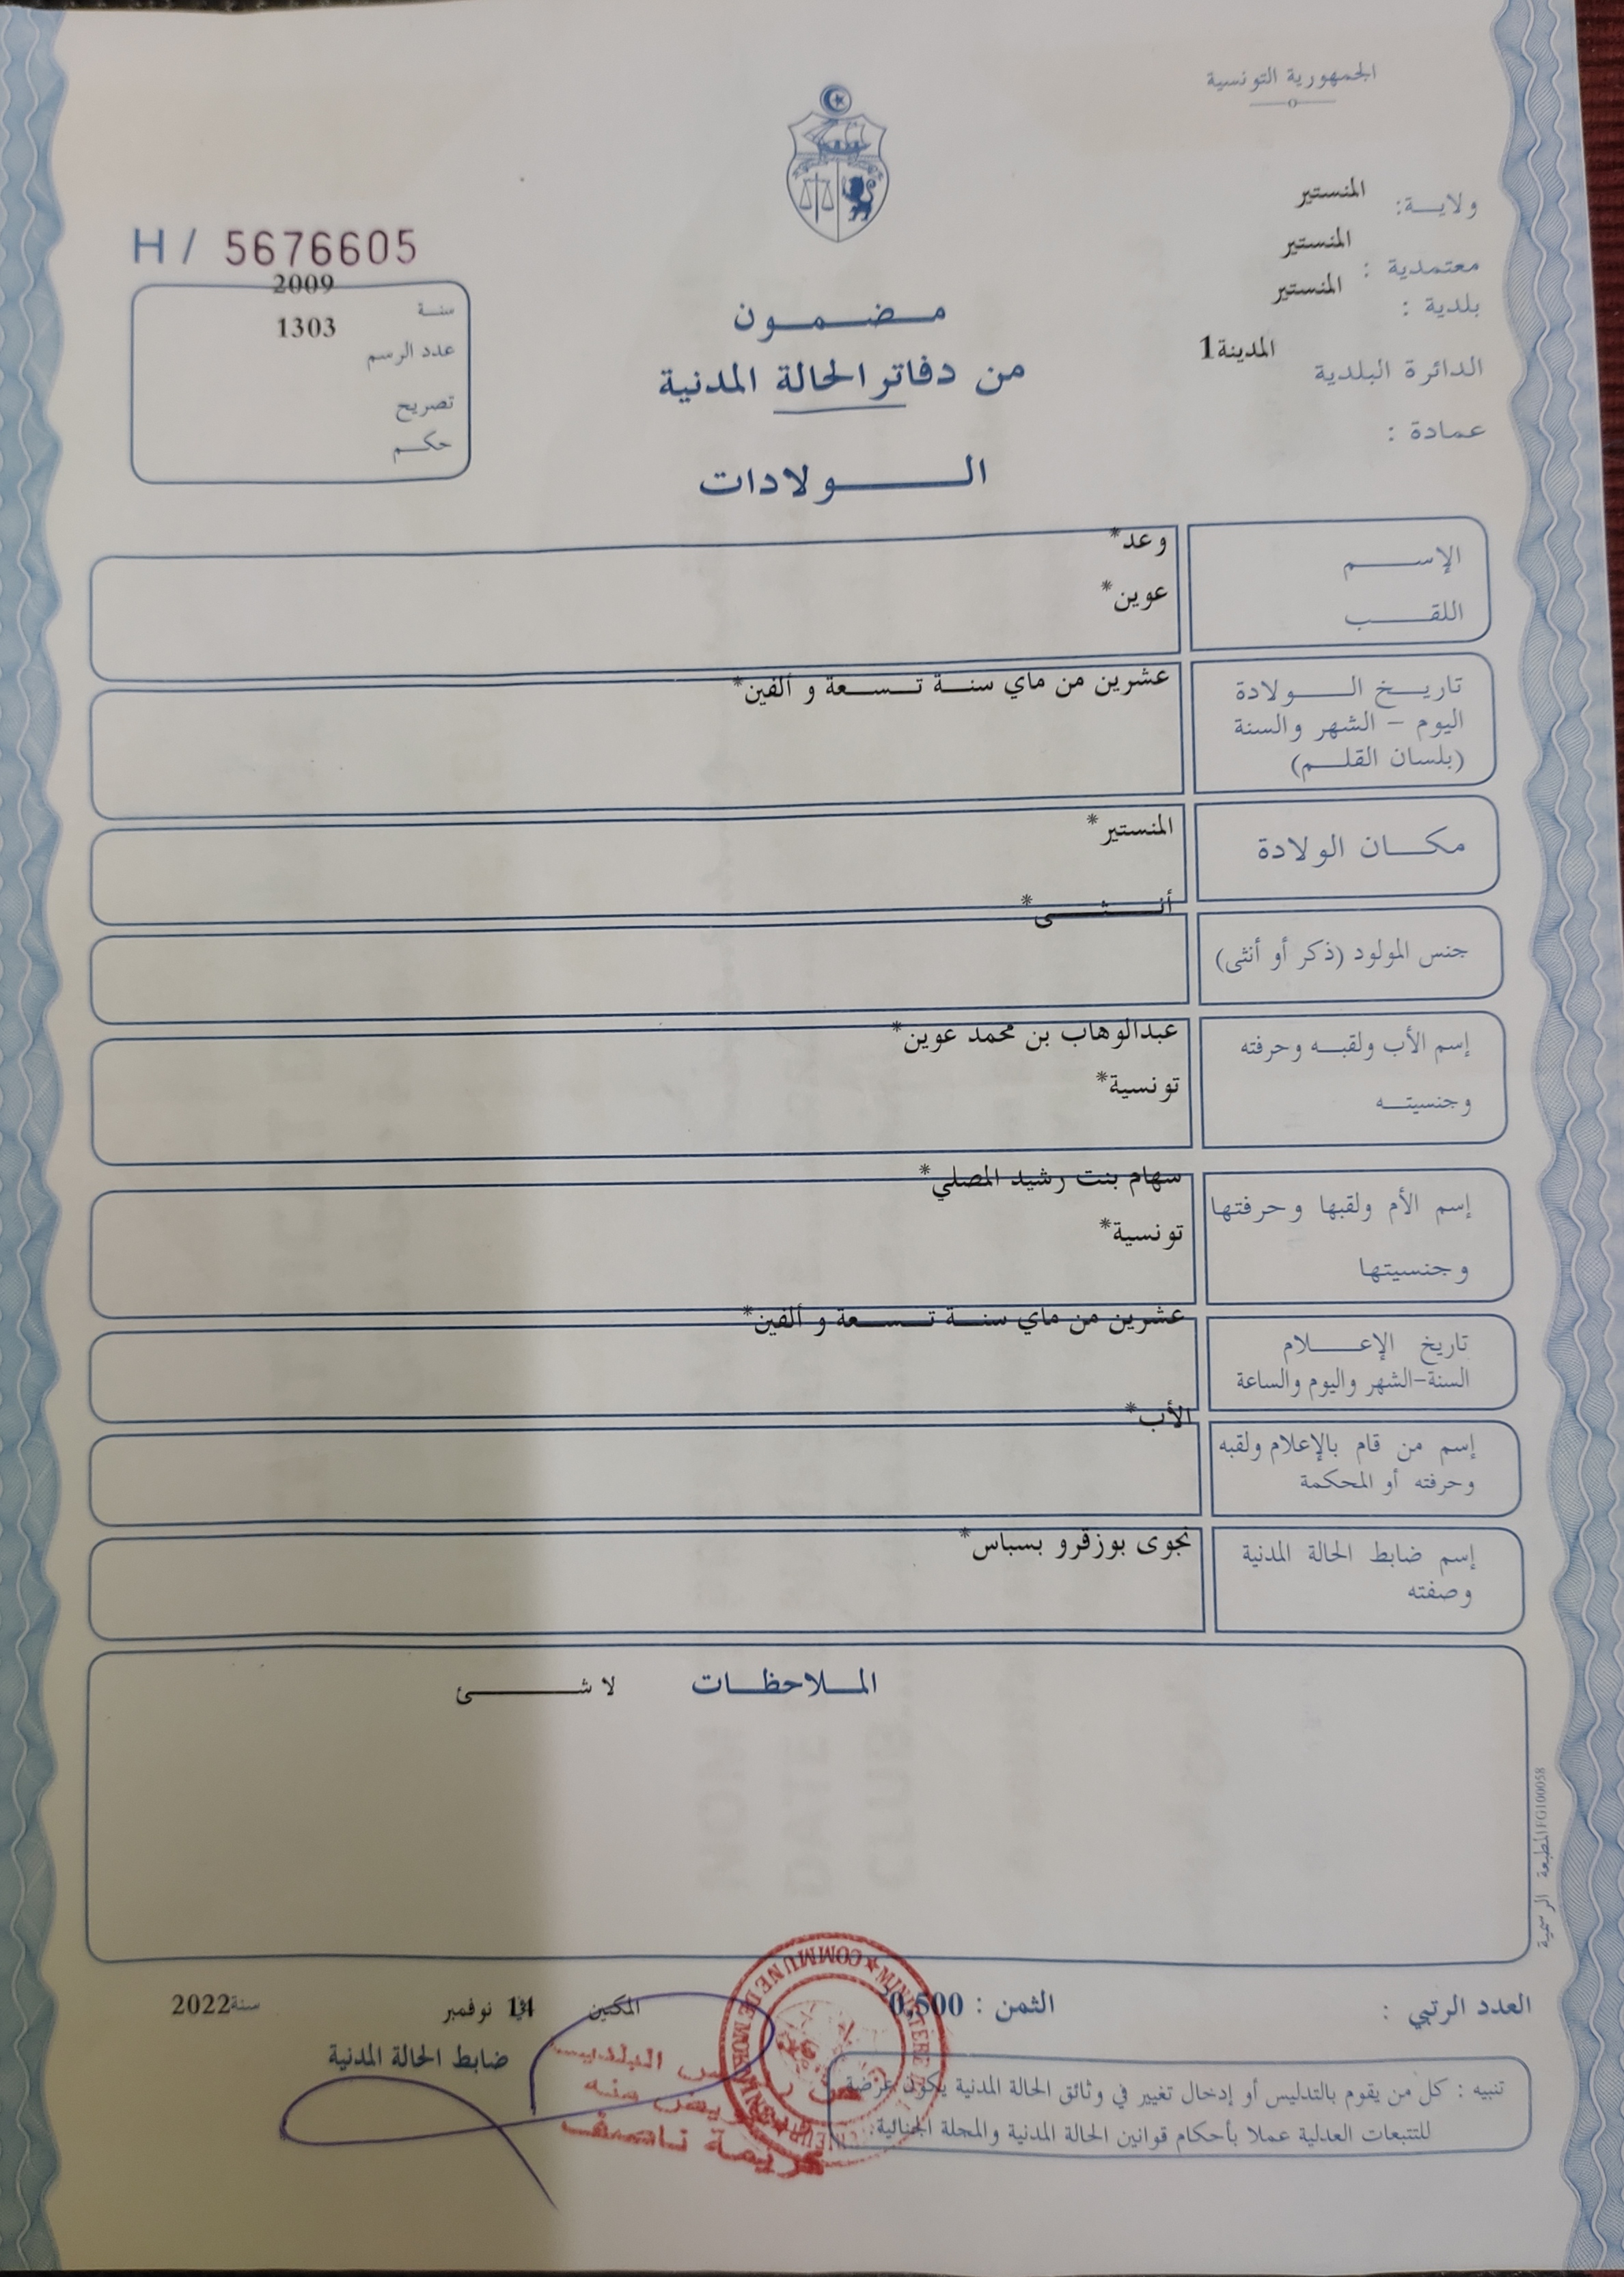 الجمهورية التونسية
ولايـــة: المنستير
معتمدية : المنستير
بلدية : المنستير
الدائرة البلدية المدينة1
عمادة :
H / 5676605
سنـة 2009
عدد الرسم 1303
تصريح
حكـــم
مـــضـــمـــون
من دفاتر الحالة المدنية
الـــــولادات
الإســـــم وعد*
اللقـــــب عوين*
تاريـــخ الـــــولادة عشرين من ماي سنـــة تـــســـعة و ألفين*
اليوم - الشهر والسنة
(بلسان القلـــم)
مكـــان الولادة المنستير*
جنس المولود (ذكر أو أنثى) أنـــثـــى*
إسم الأب ولقبـــه وحرفته عبدالوهاب بن محمد عوين*
وجنسيتـــه تونسية*
إسم الأم ولقبها وحرفتها سهام بنت رشيد المصلي*
وجنسيتها تونسية*
تاريخ الإعـــلام عشرين من ماي سنـــة تـــســـعة و ألفين*
السنة-الشهر واليوم والساعة
إسم من قام بالإعلام ولقبه الأب*
وحرفته أو المحكمة
إسم ضابط الحالة المدنية نجوى بوزقرو بسباس*
وصفته
المـــلاحظـــات لا شـــــئ
المطبعة الرسمية FG100058
العدد الرتبي : الثمن : 0,500 المكنين في 14 نوفمبر سنة 2022
ضابط الحالة المدنية
كريمة ناصف
تنبيه : كل من يقوم بالتدليس أو إدخال تغيير في وثائق الحالة المدنية يكون عرضة
للتتبعات العدلية عملا بأحكام قوانين الحالة المدنية والمجلة الجنائية.